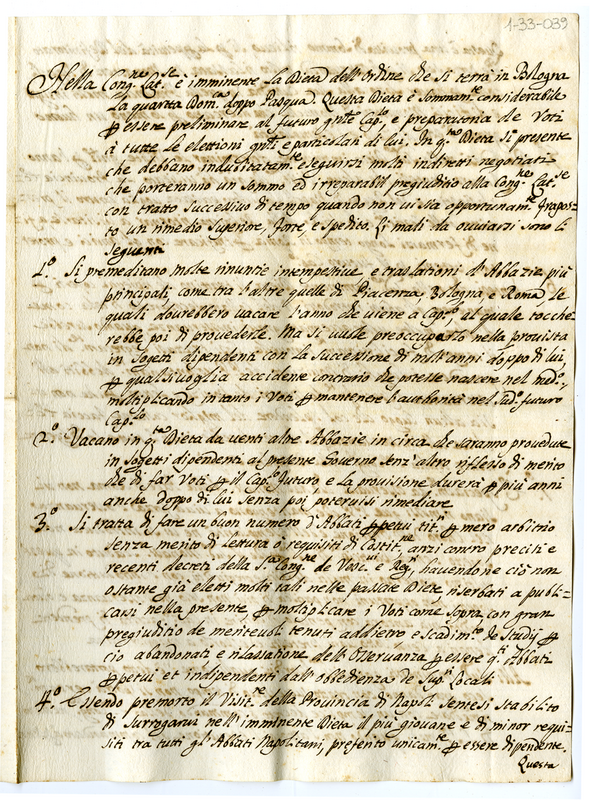 1-33-039
Nella Cong.ne Lat.se è imminente la Dieta dell'ordine che si terrà in Bologna
la quarta Dom.ca doppo Pasqua. Questa Dieta è sommam.te considerabile
p essere preliminare al futuro gnle Cap.lo, e preparatoria de Voti
à tutte le elettioni gnli e particolari di lui. In q.ta Dieta si presente
che debbano indubitatam.te eseguirsi molti indiretti negotiati
che porteranno un sommo ed irreparabil pregiuditio alla Cong.ne Lat.se
con tratto successivo di tempo quando non vi sia opportunam.te frapos=
to un rimedio superiore, forte, e spedito. Li mali da ovviarsi sono li
seguenti
1.o Si premeditano molte rinuntie intempestive, e traslationi d'Abbazie più
principali, come tra l'altre quelle di Piacenza, Bologna, e Roma, le
quali dovrebbero vacare l'anno che viene à Cap.lo, al quale tocche=
rebbe poi di provederle. Ma si vuole preoccuparlo nella provista
in sogetti dipendenti con la successione di molt'anni doppo di lui
p qualsivoglia accidente contrario che potesse nascere nel med.o,
moltiplicando intanto i Voti p mantenere l'authorità nel sud.o futuro
Cap.lo
2.o Vacano in q.ta Dieta da venti altre Abbazie in circa che saranno provedute
in sogetti dipendenti al presente Governo senz'altro riflesso di merito
che di far Voti p il Cap.lo futuro e la provisione durerà p più anni
anche doppo di lui senza poi potervisi rimediare
3.o Si tratta di fare un buon numero d'Abbati ppetui tit.ri p mero arbitrio
senza merito di lettura ò requisiti di Costit.ne, anzi contro precisi e
recenti decreti della S.a Cong.ne de Vesc. e Reg.ri, havendone ciò non
ostante già eletti molti tali nelle passate Diete, riserbati a publi=
carsi nella presente, p moltiplicare i Voti come sopra, con gran
pregiuditio de meritevoli tenuti addietro e scadim.to de studij p
ciò abandonati e rilassatione dell'Osservanza p essere q.ti Abbati
ppetui et indipendenti dall'obbedienza de Sup.ri Locali
4.o Essendo premorto il Visit.re della Provincia di Napoli sentesi stabilito
di surrogarvi nell'imminente Dieta il più giovane e di minor requi=
siti tra tutti gl'Abbati Napolitani, preferito unicam.te p essere dipendente.
Questa